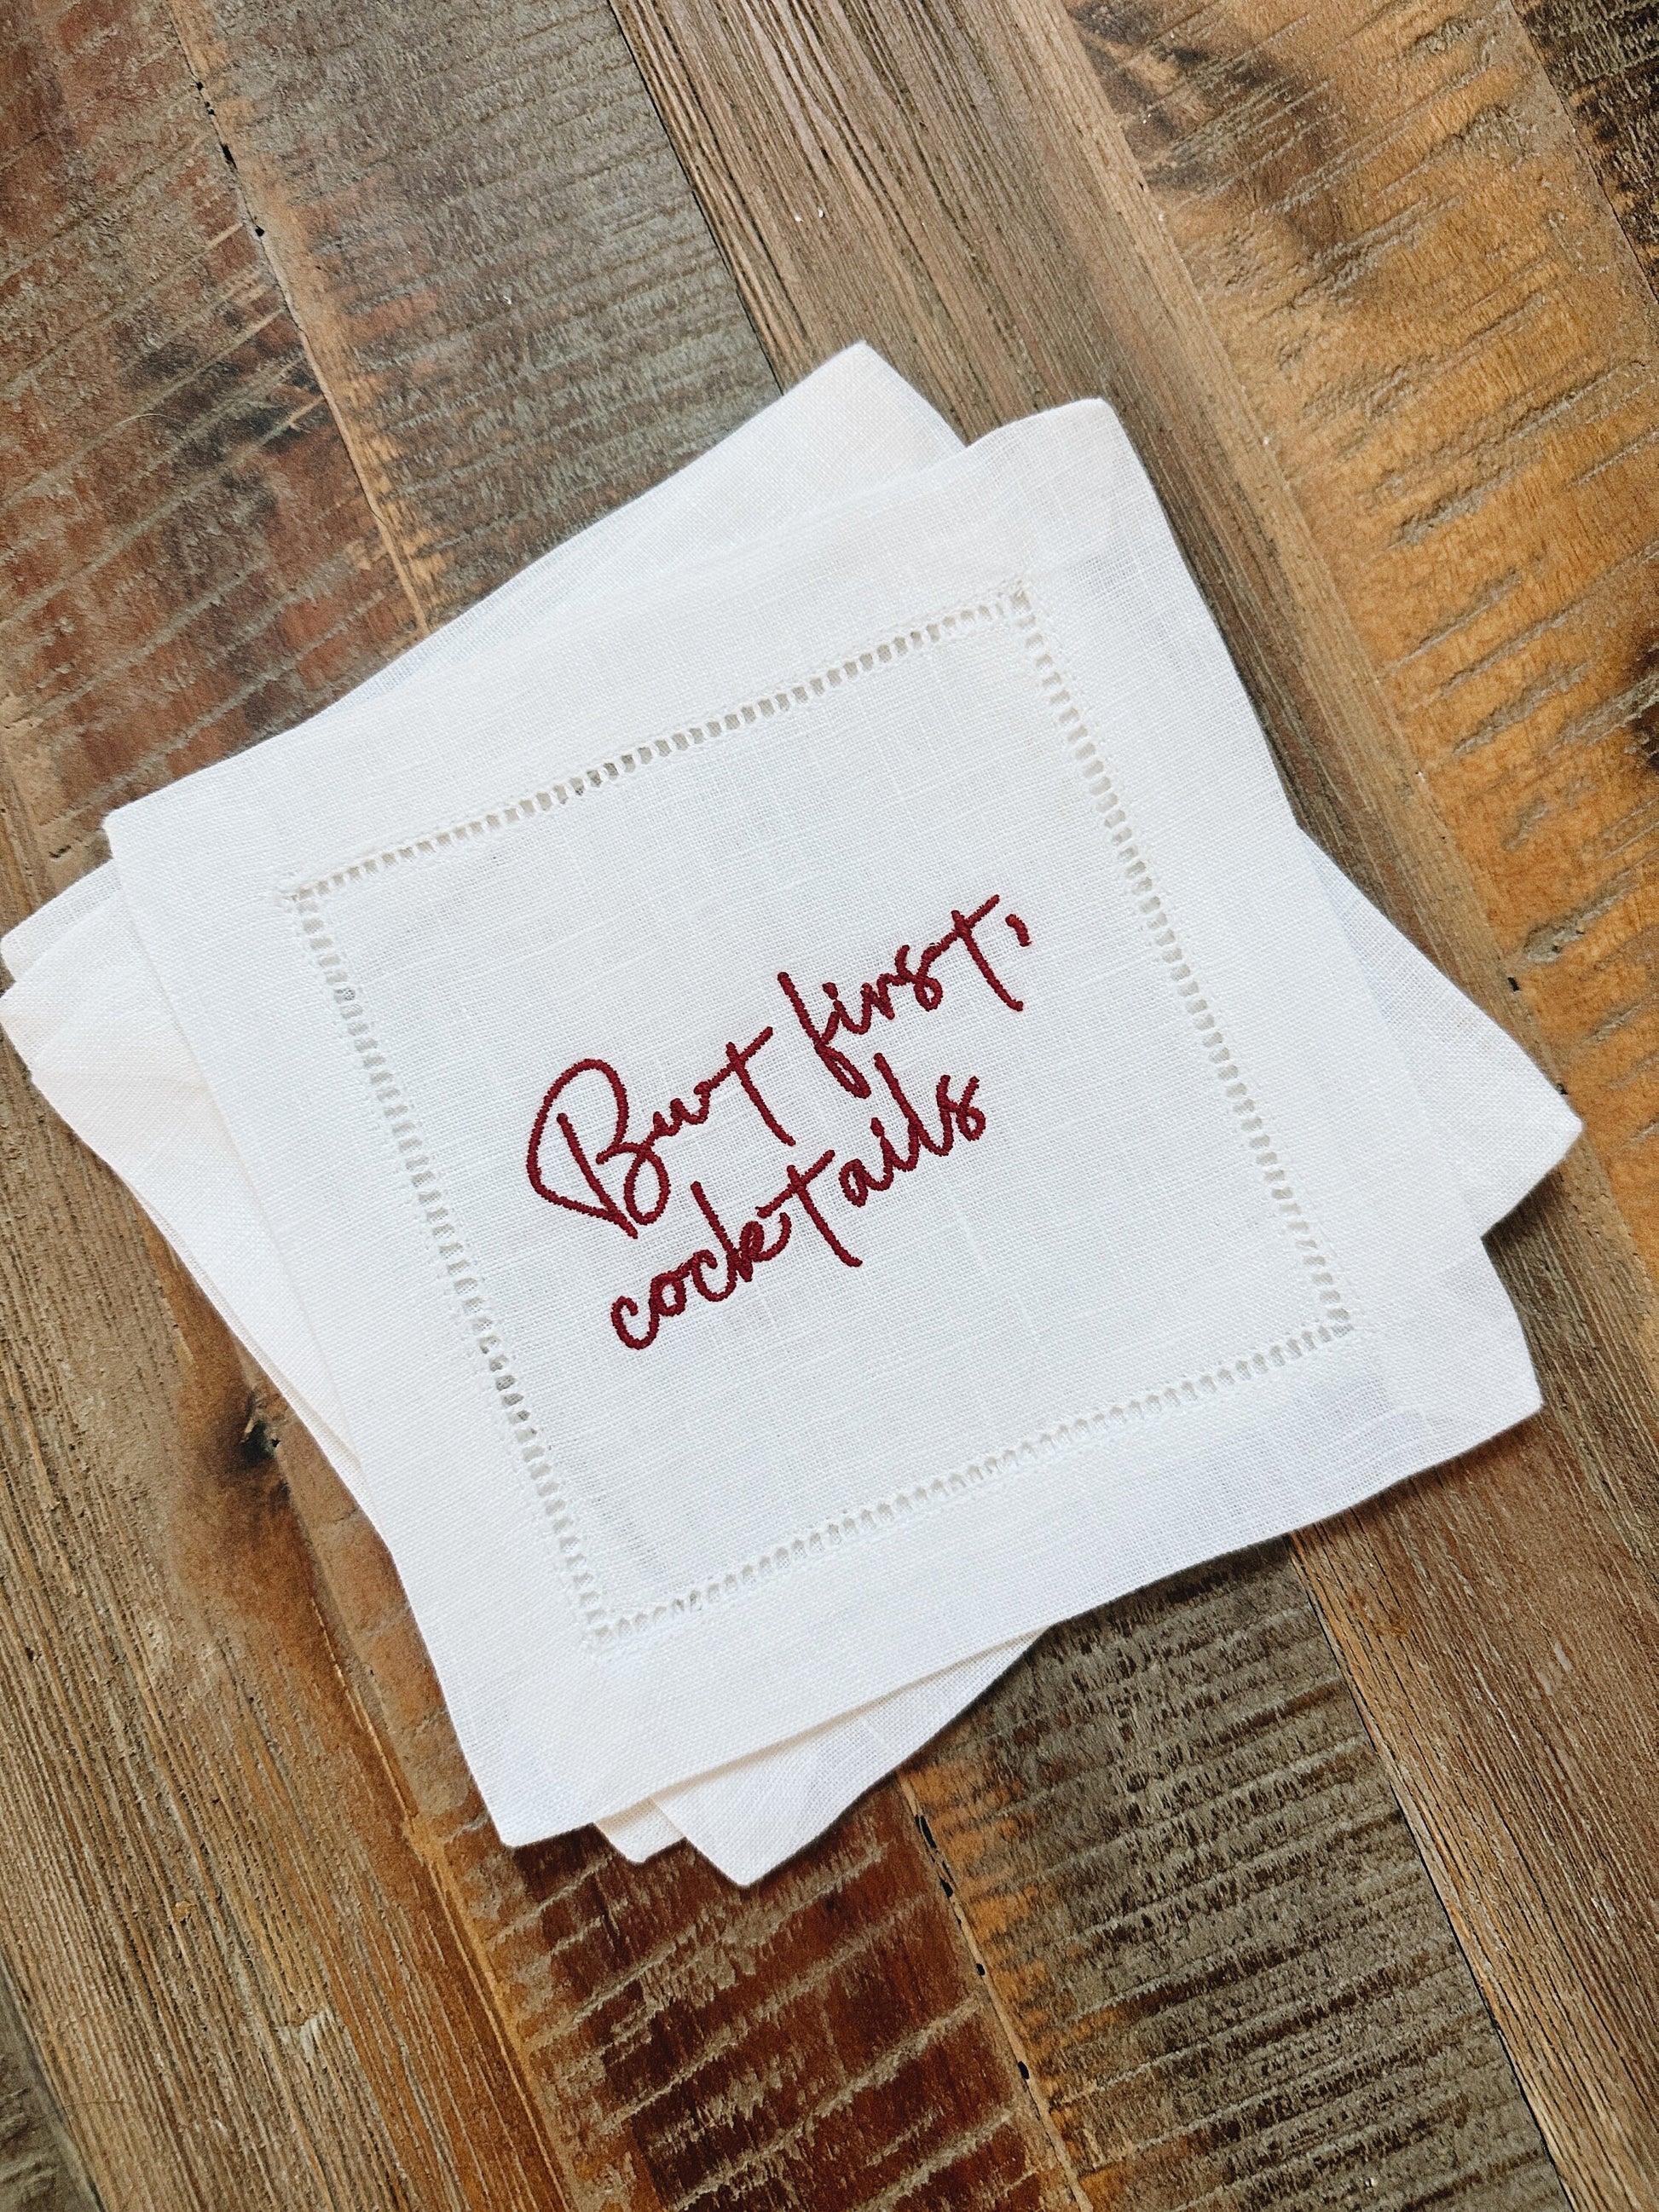 But first,
cocktails